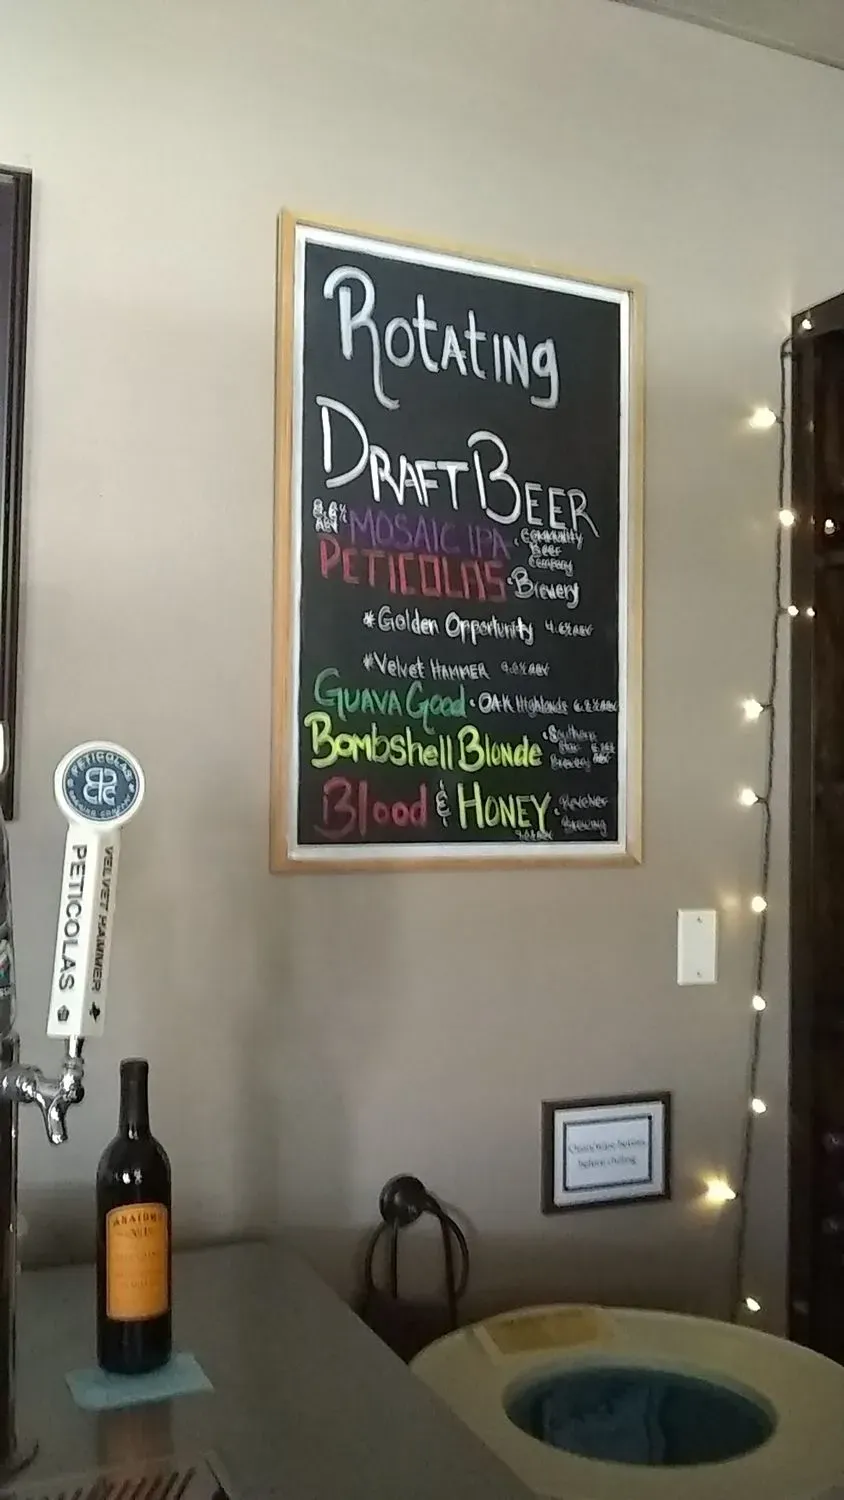 Rotating
DRAFT BEER
8.6%
ABV
MOSAIC IPA • Community
Beer
Company
PETICOLAS • Brewery
*Golden Opportunity 4.6% ABV
*Velvet HAMMER 9.0% ABV
GUAVA Good • OAK Highlands 6.2% ABV
Bombshell Blonde • Southern
Star
Brewery ABV
Blood & HONEY • Revolver
Brewing
PETICOLAS
BREWING COMPANY
VELVET HAMMER
PETICOLAS
before chilling